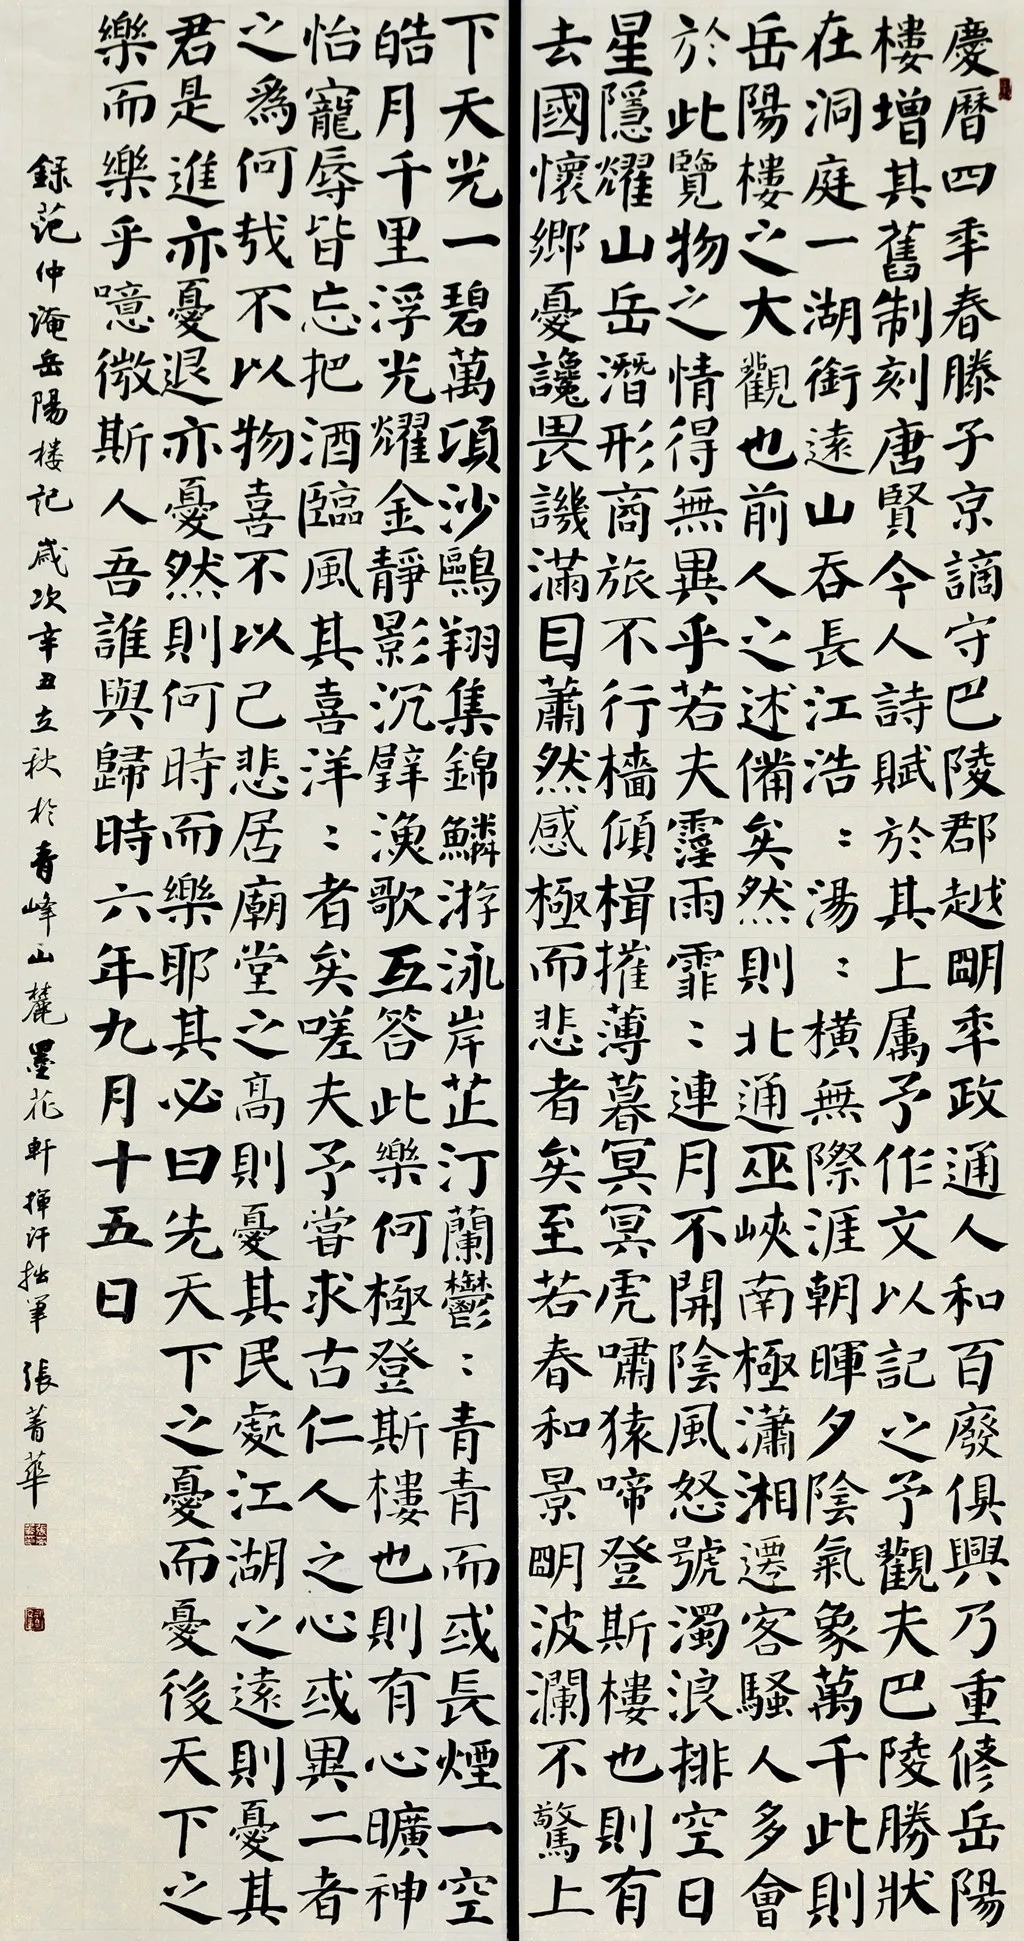 慶曆四年春滕子京謫守巴陵郡越明年政通人和百廢俱興乃重修岳陽
樓增其舊制刻唐賢今人詩賦於其上属予作文以記之予觀夫巴陵勝狀
在洞庭一湖銜遠山吞長江浩:湯:橫無際涯朝暉夕陰氣象萬千此則
岳陽樓之大觀也前人之述備矣然則北通巫峽南極瀟湘遷客騷人多會
於此覽物之情得無異乎若夫霪雨霏:連月不開陰風怒號濁浪排空日
星隱耀山岳潛形商旅不行檣傾楫摧薄暮冥冥虎嘯猿啼登斯樓也則有
去國懷鄉憂讒畏譏滿目蕭然感極而悲者矣至若春和景明波瀾不驚上
下天光一碧萬頃沙鷗翔集錦鱗游泳岸芷汀蘭鬱:青青而或長煙一空
皓月千里浮光耀金靜影沉璧漁歌互答此樂何極登斯樓也則有心曠神
怡寵辱皆忘把酒臨風其喜洋:者矣嗟夫予嘗求古仁人之心或異二者
之為何哉不以物喜不以己悲居廟堂之高則憂其民處江湖之遠則憂其
君是進亦憂退亦憂然則何時而樂耶其必曰先天下之憂而憂後天下之
樂而樂乎噫微斯人吾誰與歸時六年九月十五日
錄范仲淹岳陽楼記 歲次辛丑立秋於青峰山麓墨花軒揮汗拙筆 張菁華